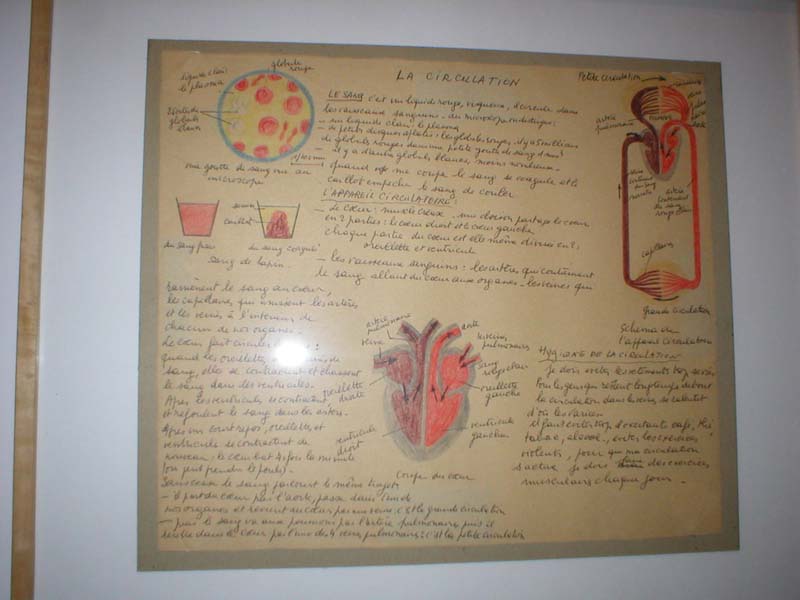 LA CIRCULATION
globule rouge
liquide clair le plasma
globules blancs
une goutte de sang vue au
microscope
LE SANG c'est un liquide rouge, visqueux, il circule dans
les vaisseaux sanguins. au microscope on distingue :
- un liquide clair : le plasma
- de petits disques aplatis : les globules rouges, il y a 5 millions
de globules rouges dans une petite goutte de sang
- il y a d'autres globules blancs, moins nombreux
Quand on me coupe le sang se coagule et le
caillot empêche le sang de couler
sérum
caillot
du sang frais
du sang coagulé
Sang de lapin
L'APPAREIL CIRCULATOIRE :
- Le cœur : muscle creux, une cloison partage le cœur
en 2 parties : le cœur droit et le cœur gauche
chaque partie du cœur est elle même divisée en 2 :
oreillette et ventricule
- les vaisseaux sanguins : les artères qui contiennent
le sang allant du cœur aux organes - les veines qui
ramènent le sang au cœur,
les capillaires qui unissent les artères
et les veines à l'intérieur de
chacun de nos organes.
Le cœur fait circuler
quand les oreillettes de
sang, elles se contractent et chassent
le sang dans les ventricules.
Après les ventricules se contractent
et refoulent le sang dans les artères.
Après un court repos, oreillettes et
ventricules se contractent de
nouveau : le cœur bat fois la minute
(on peut prendre le pouls).
Sans cesse le sang parcourt le même trajet :
- il part du cœur par l'aorte, passe dans
nos organes et revient au cœur par une veine : c'est la grande circulation
- puis le sang va aux poumons par l'artère pulmonaire, puis il
rentre dans le cœur par l'une des 4 veines pulmonaires : c'est la petite circulation
artère pulmonaire
aorte
veine
veines pulmonaires
sang rouge clair
oreillette droite
oreillette gauche
ventricule droit
ventricule gauche
Coupe du cœur
Petite circulation
artère pulmonaire
poumons
veine contenant du sang
artère contenant du sang rouge clair
capillaires
Grande circulation
Schéma de
l'appareil circulatoire
HYGIÈNE DE LA CIRCULATION
je dois éviter les vêtements trop serrés
Pour les gens qui restent longtemps debout
la circulation dans les veines se ralentit
d'où les varices
il faut éviter trop d'excitants café, thé
tabac, alcool, éviter les exercices
violents, pour que ma circulation
s'active je dois des exercices
musculaires chaque jour -